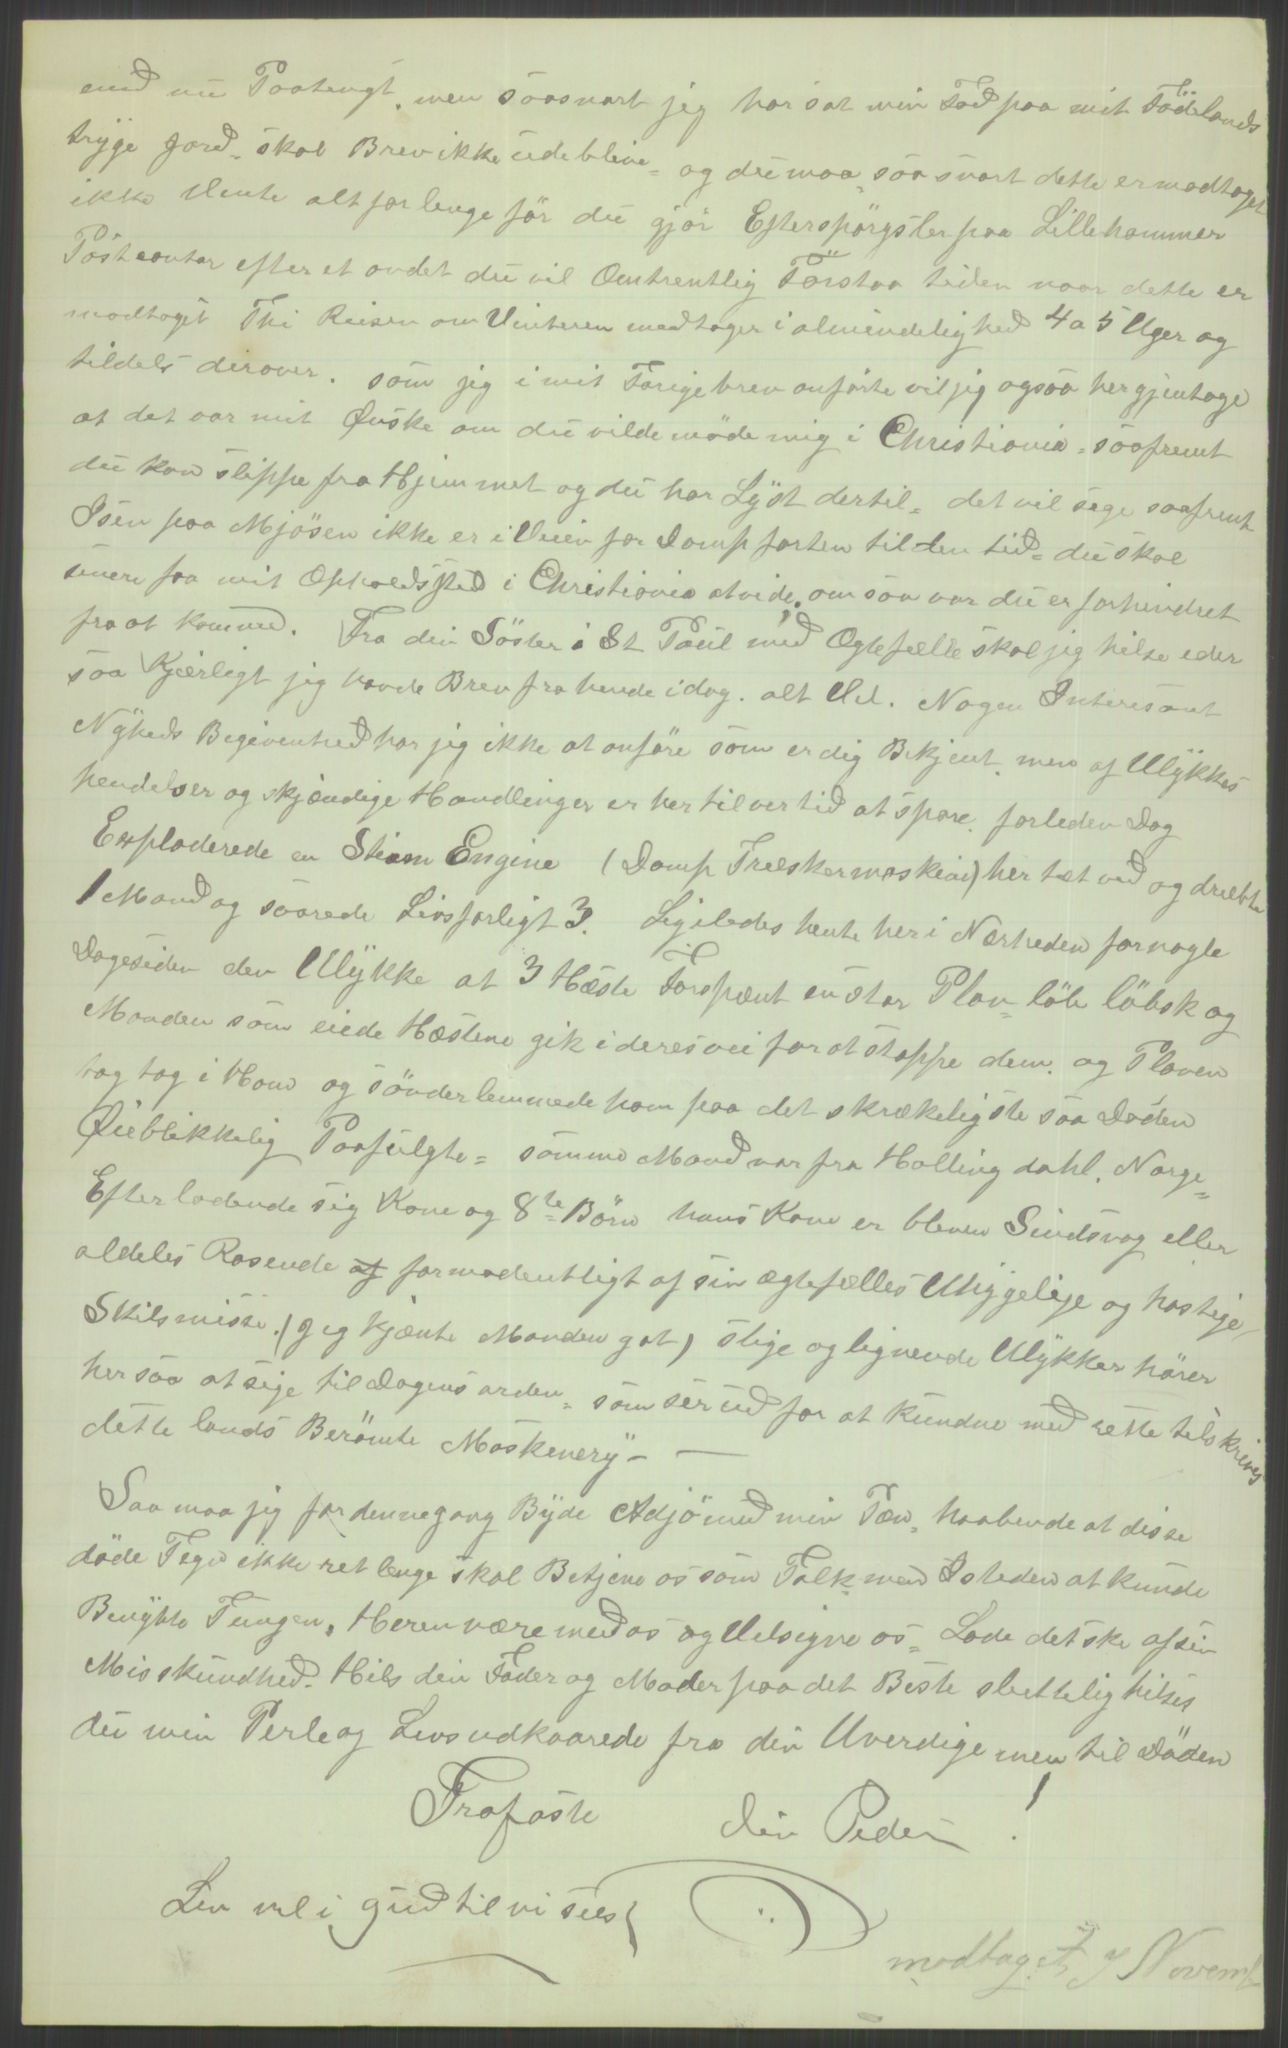 med nu Paatengt, men saasnart jeg har sat min Fod paa mit Födelands
tryge Jord, skal Brev ikke udeblive, og du maa, saasnart dette er modtaget
ikke Vente alt for lenge för du gjör Efterspörgsler paa Lillehammer
Postcontor efter et andet du vil Omtrentlig Forstaa tiden naar dette er
modtaget Thi Reisen om Vinteren medtager i almindelighed 4 a 5 Uger og
tildels derover. som jeg i mit Forige brev anförte vil jeg ogsaa her gjentage
at det var mit Ønske om du vilde möde mig i Christiania, saafremt
du kan slippe fra Hjemmet og du har Lyst dertil, det vil sige saafremt
Isen paa Mjösen ikke er i Veien for Dampfarten til den tid, du skal
senere faa mit Opholdssted i Christiania at vide, om saa var du er forhindret
fra at komme. Fra din Söster i St Paul med Ogtefelle skal jeg hilse eder
saa Kjerligt jeg havde Brev fra hende i dag. alt Vel. Nogen Interesant
Nyheds Begivenhed har jeg ikke at anföre som er dig Bekjent, men af Ulykkes
hendelser og skjændige Handlinger er her til ver tid at spore. forleden Dag
Exploderede en Steam Engine (Damp Treskermaskin) her tæt ved og dræbte
1 Mand og saarede Livsfarligt 3. Ligeledes hente her i Nærheden for nogle
Dage siden den Ulykke at 3 Hæste Forspænt en stor Plov, löb löbsk og
Manden som eiede Hæstene gik i deres vei for at stoppe dem. og Ploven
tog tag i Ham og sönderlemmede ham paa det skrækeligste saa Døden
Øieblikkelig Paafulgte, samme Mand var fra Hallingdahl, Norge,
Efterladende sig Kone og 8te Börn hans Kone er bleven Sindsvag eller
aldeles Rasende af formodentligt af sin ægtefælles Uhyggelige og hastige
Skilsmisse. (Jeg kjænte Manden got) slige og lignende Ulykker hører
her saa at sige til Dagens orden, som ser ud for at kundne med rette tilskrives
dette lands Berömte Maskenery —
Saa maa jeg for denne gang Byde Adjö med min Pæn, haabende at disse
döde Tegn ikke ret lenge skal Betjene os som Tolk, men Isteden at kunde
Benytte Tungen, Heren være med os og Velsigne os, Lade det ske af sin
Miskundhed. Hils din Fader og Moder paa det Beste sluttelig hilses
du min Perle og Livs udkaarede fra din Uverdige men til Döden
Trofaste din Peder !
Lev vel i Gud til vi sees
modtaget 7 Novemb